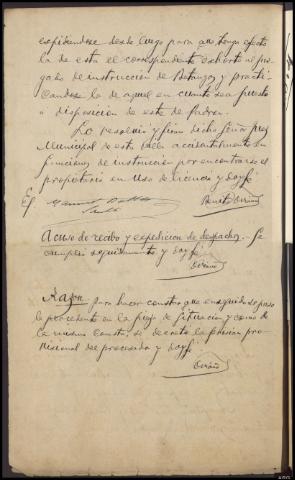 expidiéndose desde luego para que tenga efecto
la de esta el correspondiente exhorto al juz
gado de instrucción de Betanzos y practi
candose la de aquel en cuanto sea puesto
a disposición de este de Padron.
Lo resolvió y firma dicho Señor juez
Municipal de esta villa accidentalmente en
funciones de instrucción por encontrarse el
propietario en uso de licencia y doy fe
Manuel
Acuso de recibo y expedicion de despachos. Se
cumplió seguidamente y doy fe
Razon para hacer constar que enseguida se puso
lo procedente en la pieza de situacion y como de
la misma consta, se decretó la prision pro
visional del procesado y doy fe